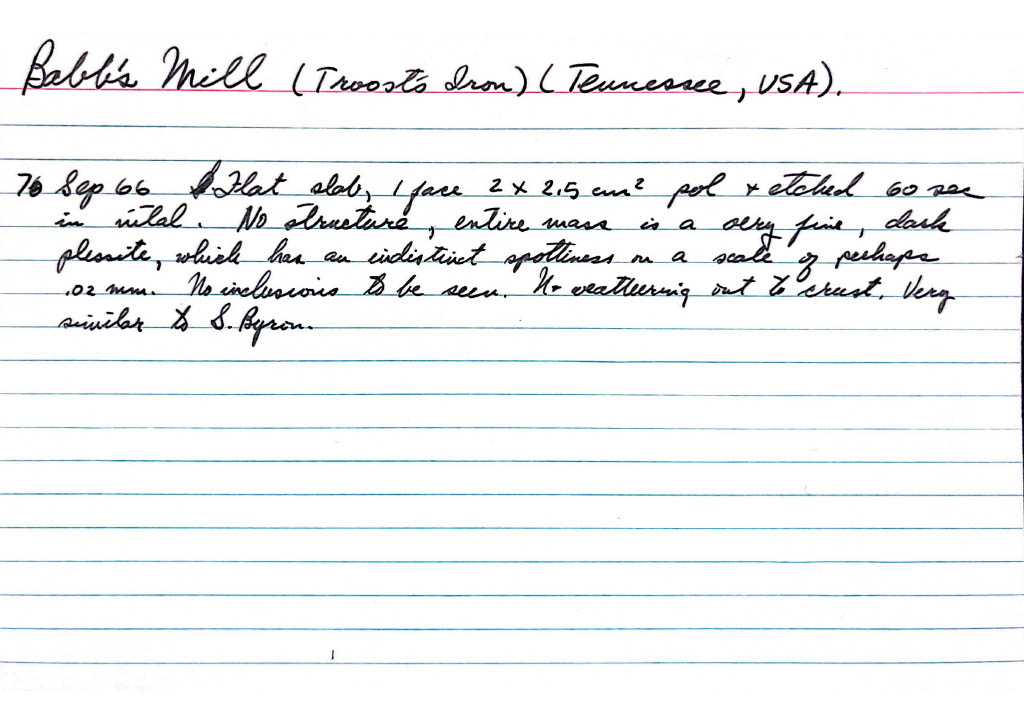 Babb's Mill (Troost's Iron) (Tennessee, USA).
Sep 66 Flat slab, 1 face 2 x 2.5 cm² pol + etched 60 sec
in nital. No structure, entire mass is a very fine, dark
plessite, which has an indistinct spottiness on a scale of perhaps
.02 mm. No inclusions to be seen. weathering out to crust. Very
similar to S. Byron.